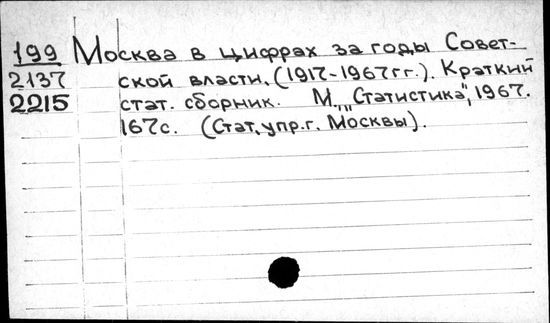 199 Москва в цифрах за годы Совет-
2137 ской власти. (1917-1967гг.). Краткий
2215 стат. сборник. М., "Статистика", 1967.
167с. (Стат. упр. г. Москвы).